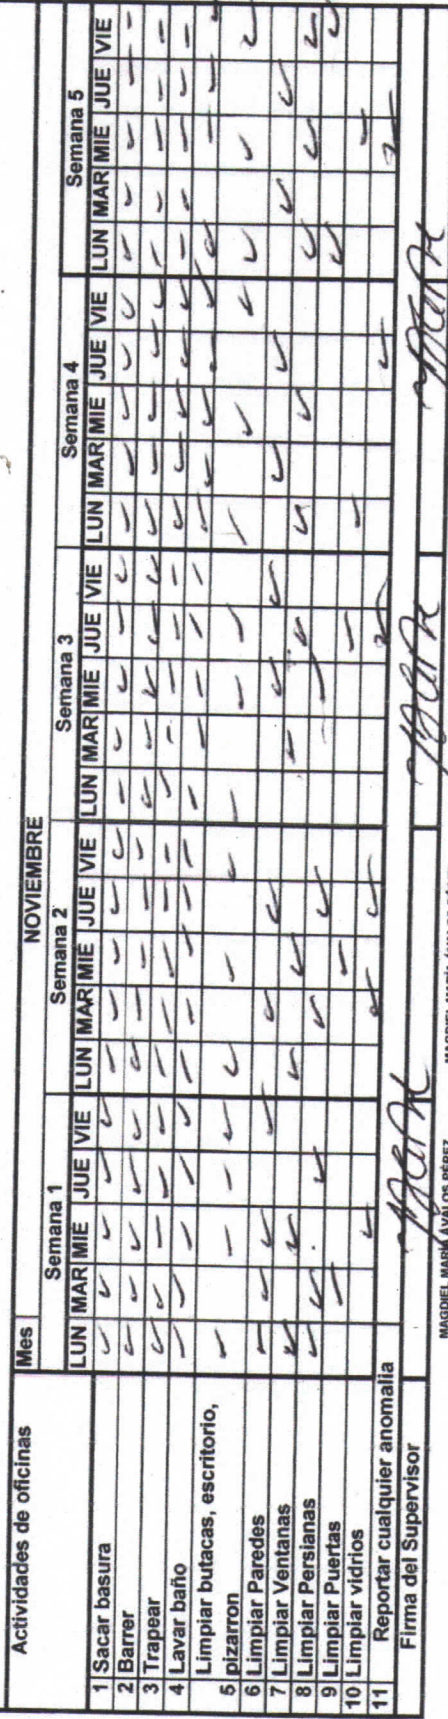 Actividades de oficinas
Mes NOVIEMBRE
Semana 1 Semana 2 Semana 3 Semana 4 Semana 5
LUN MAR MIE JUE VIE LUN MAR MIE JUE VIE LUN MAR MIE JUE VIE LUN MAR MIE JUE VIE LUN MAR MIE JUE VIE
1 Sacar basura
2 Barrer
3 Trapear
4 Lavar baño
Limpiar butacas, escritorio,
5 pizarron
6 Limpiar Paredes
7 Limpiar Ventanas
8 Limpiar Persianas
9 Limpiar Puertas
10 Limpiar vidrios
11 Reportar cualquier anomalia
Firma del Supervisor
MAGDIEL MARÍA ÁVALOS PÉREZ